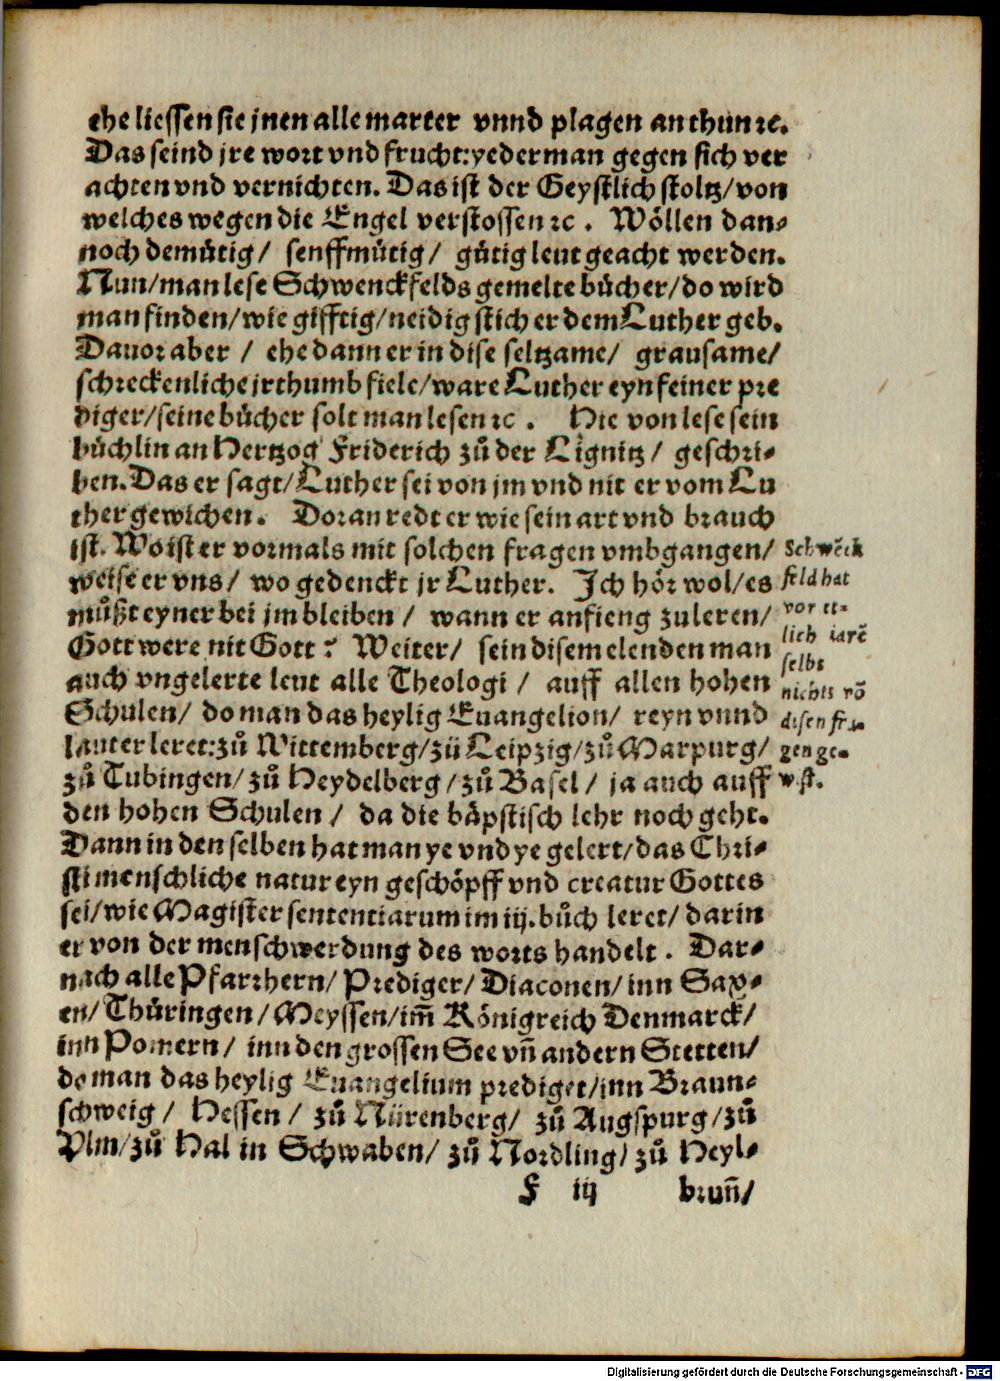 ehe liessen sie jnen alle marter vnnd plagen anthun ꝛc.
Das seind jre wort vnd frucht: yederman gegen sich ver
achten vnd vernichten. Das ist der Geystlich stoltz/ von
welches wegen die Engel verstossen ꝛc. Wöllen dan-
noch demütig/ senffmütig/ gütig leut geacht werden.
Nun/ man lese Schwenckfelds gemelte bücher/ do wird
man finden/ wie gifftig/ neidig stich er dem Luther geb.
Dauor aber/ ehe dann er in dise seltzame/ grausame/
schreckenliche jrthumb fiele/ ware Luther eyn feiner pre
diger/ seine bücher solt man lesen ꝛc. Hie von lese sein
büchlin an Hertzog Friderich zů der Lignitz/ geschri-
ben. Das er sagt/ Luther sei von jm vnd nit er vom Lu
ther gewichen. Doran redt er wie sein art vnd brauch
ist. Wo ist er vormals mit solchen fragen vmbgangen/
weise er vns/ wo gedenckt jr Luther. Ich hör wol/ es
müßt eyner bei jm bleiben/ wann er anfieng zuleren/
Gott were nit Gott? Weiter/ sein disem elenden man
auch vngelerte leut alle Theologi/ auff allen hohen
Schulen/ do man das heylig Euangelion/ reyn vnnd
lauter leret: zů Wittemberg/ zů Leipzig/ zů Marpurg/
zů Tubingen/ zů Heydelberg/ zů Basel/ ja auch auff
den hohen Schulen/ da die bäpstisch lehr noch geht.
Dann in den selben hat man ye vnd ye gelert/ das Chri-
sti menschliche natur eyn geschöpff vnd creatur Gottes
sei/ wie Magister sententiarum im iij. bůch leret/ darin
er von der menschwerdung des worts handelt. Dar-
nach alle Pfarrhern/ Prediger/ Diaconen/ inn Sax-
en/ Thüringen/ Meyssen/ im̄ Königreich Denmarck/
inn Pomern/ inn den grossen See vn̄ andern Stetten/
do man das heylig Euangelium prediget/ inn Braun-
schweig/ Hessen/ zů Nürenberg/ zů Augspurg/ zů
Vlm/ zů Hal in Schwaben/ zů Nordling/ zů Heyl-
F iij brun̄/
Schwēck
feld hat
vor et-
lich iarē
selbs
nichts vō
disen fra
gen ge-
wst.
Digitalisierung gefördert durch die Deutsche Forschungsgemeinschaft - DFG